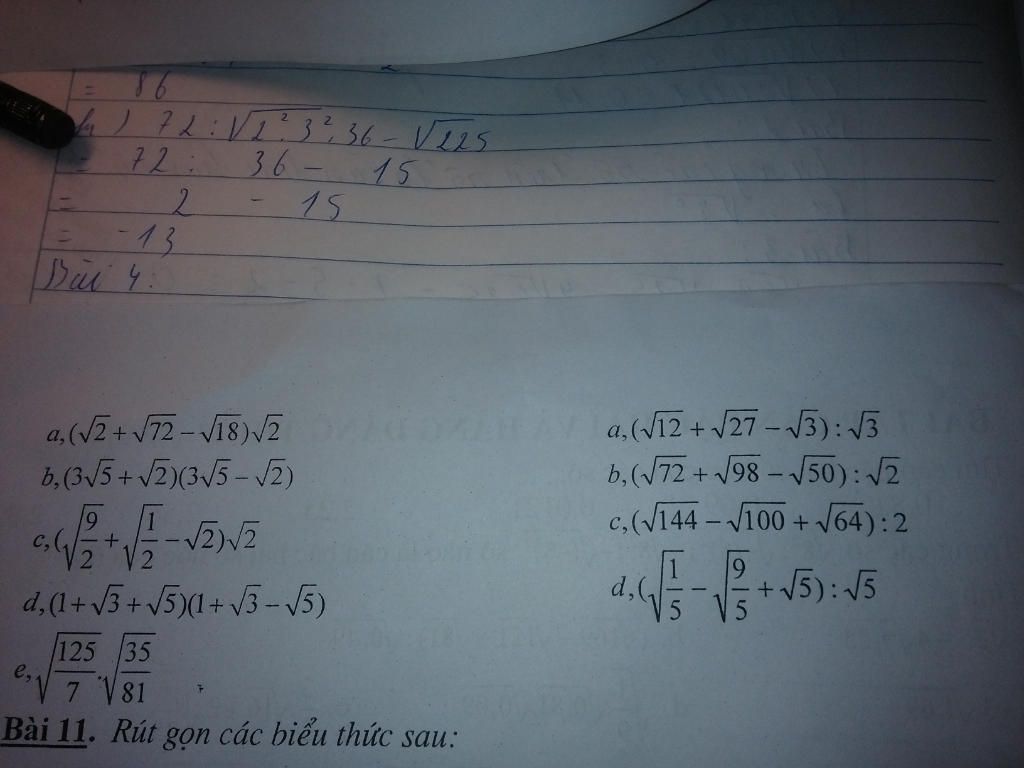 = 86
b) 72 : √2².3².36 − √225
= 72 : 36 − 15
= 2 − 15
= -13
Bài 4:
a,(√2 + √72 − √18)√2
b,(3√5 + √2)(3√5 − √2)
c,(√9/2 + √1/2 − √2)√2
d,(1+√3+√5)(1+√3−√5)
e,√125/7.√35/81
a,(√12 + √27 − √3):√3
b,(√72 + √98 − √50):√2
c,(√144 − √100 + √64):2
d,(√1/5 − √9/5 + √5):√5
Bài 11. Rút gọn các biểu thức sau: